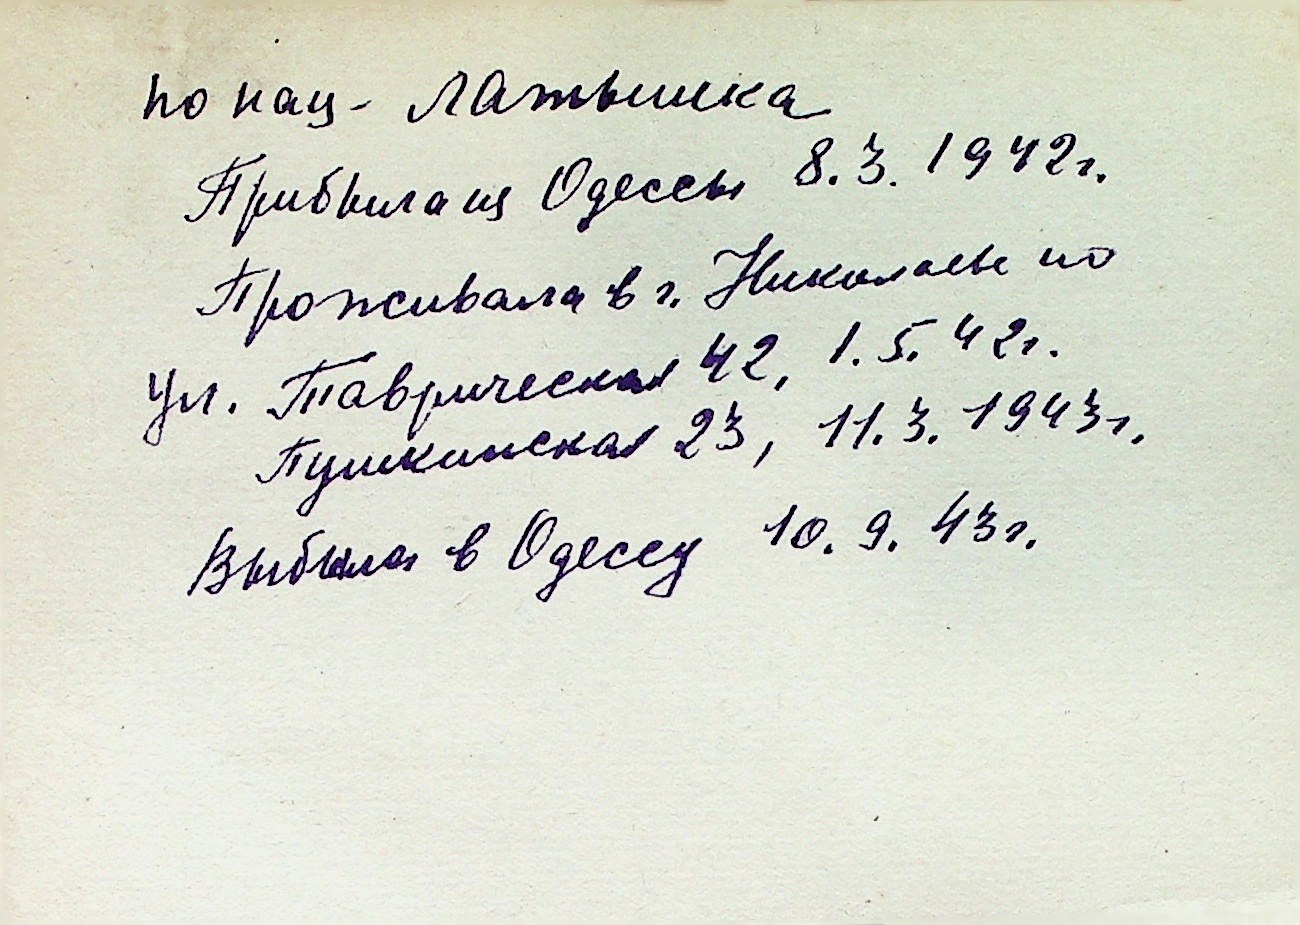 по нац - латышка
Прибыла из Одессы 8.3.1942г.
Проживала в г. Николаеве по
ул. Таврическая 42, 1.5.42г.
Пушкинская 23, 11.3.1943г.
Выбыла в Одессу 10.9.43г.